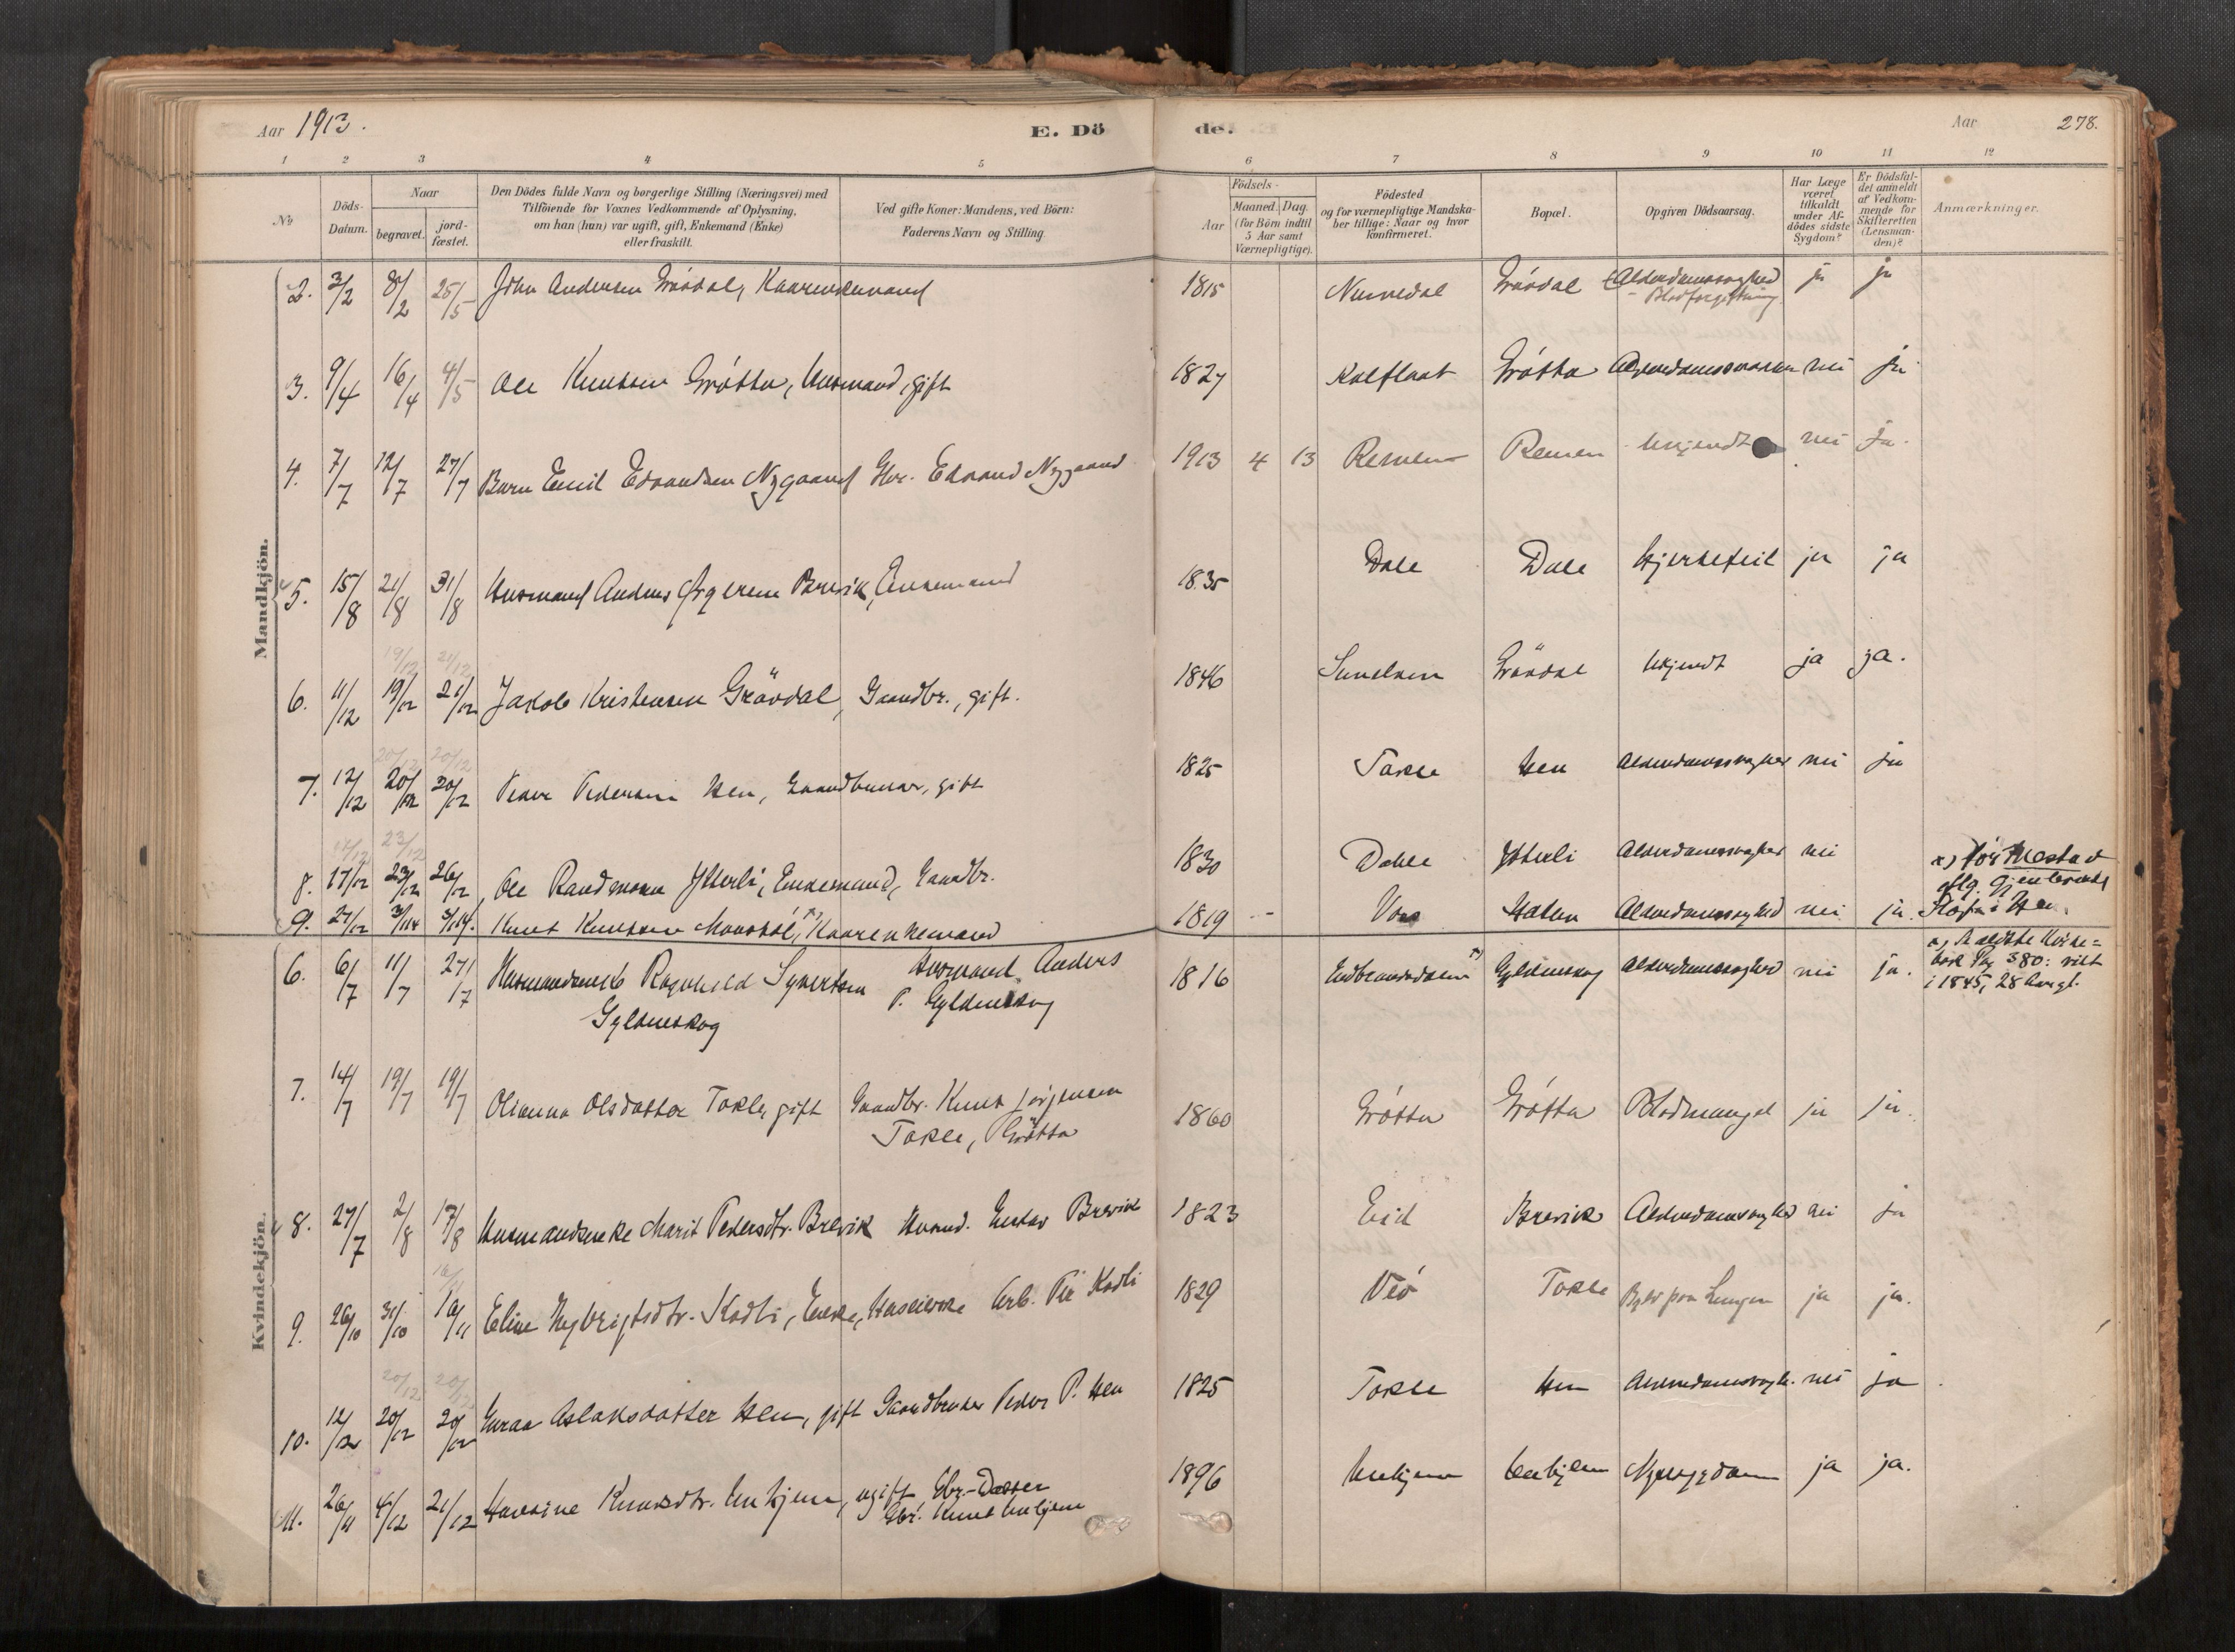 Aar 1913.
E. Dö
de.
Aar
278.
1 2 3 4 5 6 7 8 9 10 11 12
No
Döds-Datum.
Naar
begravet.
jord-fæstet.
Den Dödes fulde Navn og borgerlige Stilling (Næringsvei) med
Tilföiende for Voxnes Vedkommende af Oplysning,
om han (hun) var ugift, gift, Enkemand (Enke)
eller fraskilt.
Ved gifte Koner: Mandens, ved Börn:
Faderens Navn og Stilling.
Födsels-
Aar
Maaned. Dag.
(for Börn indtil
5 Aar samt
Værnepligtige).
Födested
og for værnepligtige Mandska-
ber tillige: Naar og hvor
konfirmeret.
Bopæl.
Opgiven Dödsaarsag.
Har Læge
været
tilkaldt
under Af-
dödes sidste
Sygdom?
Er Dödsfal-
det anmeldt
af Vedkom-
mende for
Skifteretten
(Lensman-
den)?
Anmærkninger.
Mandkjön.
2. 3/2 8/2 25/5 John Andersen Grövdal, Kaarenkemand 1815 Grövdal Alderdomssvaghed ja ja
- Blodforgiftning
3. 9/4 16/4 4/5 Ole Knutsen Grötta, Husmand, gift 1827 Kalflaat Grötta nei ja
4. 7/7 12/7 27/7 Barn Emil Edvardsen Nygaard Gbr. Edvard Nygaard 1913 4 13 Remen Remen Ukjendt nei ja.
5. 15/8 21/8 31/8 Husmand Anders Brevik, Enkemand 1835 Dale Dale Hjertefeil ja ja
19/12 21/12
6. 11/12 19/12 21/12 Jakob Kristensen Grövdal, Gaardbr., gift. 1846 Grövdal Ukjendt ja ja.
20/12 20/12
7. 12/12 20/12 20/12 Peder Pedersen Hen, Gaardbruker, gift 1825 Tokle Hen Alderdomssvaghed nei ja
23/12
8. 17/12 23/12 26/12 Ole Rasmussen Ytterli, Enkemand, Gaardbr. 1830 Dahle Ytterli Alderdomssvaghed nei
9. 27/12 3/1 14 3/1 14. Knut Knutsen x) Kaarenkemand 1819 Voss Alderdomssvaghed nei ja.
x) for Mestad
Hen
Kvindekjön.
6. 6/7 11/7 27/7 Husmandsenke Ragnhild Syvertsen Husmand Anders 1816 Gudbrandsdalen x) Gyldenskog Alderdomssvaghed nei ja.
Gyldenskog P. Gyldenskog
x)
Pag 380:
i 1845, 28 Aar gl.
7. 14/7 19/7 19/7 Olianna Olsdatter Tokle, gift Gaardbr. Knut Jörgensen 1860 Grötta Grötta Blodmangel ja ja.
Tokle, Grötta
8. 27/7 2/8 17/8 Husmandsenke Marit Pedersdtr. Brevik Husmd. Gustav Brevik 1823 Eid Brevik Alderdomssvaghed nei ja
16/11
9. 26/10 31/10 16/11 Eline Kadli, Enke, Arb. Kadli 1829 Veö Tokle ja ja.
20/12 20/12
10. 12/12 20/12 20/12 Guraa Aslaksdatter Hen, gift Gaardbruker Peder P. Hen 1825 Tokle Hen nei ja
11. 26/11 4/12 21/12 Knutsdtr. Unhjem, ugift Gbr.-Datter 1896 Unhjem Unhjem ja ja.
Gbr. Knut Unhjem